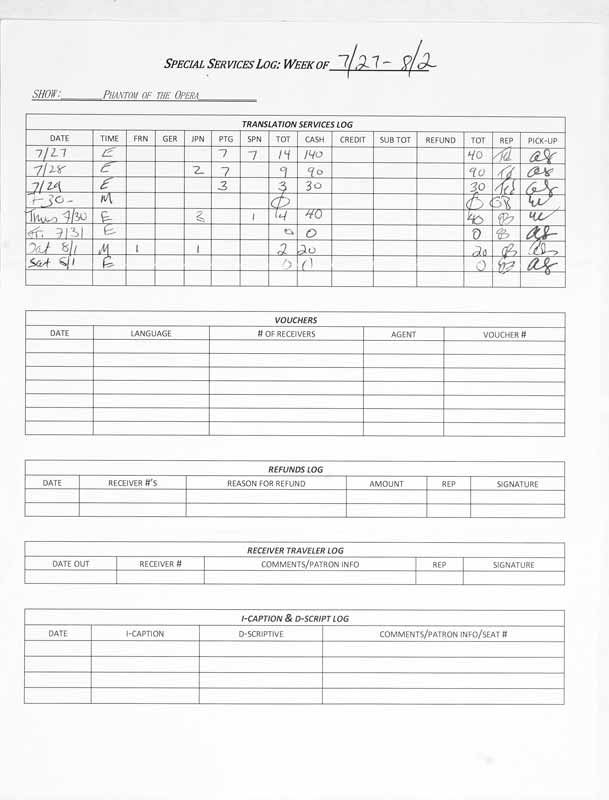 SPECIAL SERVICES LOG: WEEK OF 7/27 - 8/2
SHOW: PHANTOM OF THE OPERA
TRANSLATION SERVICES LOG
DATE TIME FRN GER JPN PTG SPN TOT CASH CREDIT SUB TOT REFUND TOT REP PICK-UP
7/27 E 7 7 14 140 40
7/28 E 2 7 9 90 90
7/29 E 3 3 30 30
30- M 0 0
Thurs 7/30 E 1 4 40 40
7/31 E 0 0 0
Sat 8/1 M 1 1 2 20 20
Sat 8/1 E 0 0 0
VOUCHERS
DATE LANGUAGE # OF RECEIVERS AGENT VOUCHER #
REFUNDS LOG
DATE RECEIVER #'S REASON FOR REFUND AMOUNT REP SIGNATURE
RECEIVER TRAVELER LOG
DATE OUT RECEIVER # COMMENTS/PATRON INFO REP SIGNATURE
I-CAPTION & D-SCRIPT LOG
DATE I-CAPTION D-SCRIPTIVE COMMENTS/PATRON INFO/SEAT #